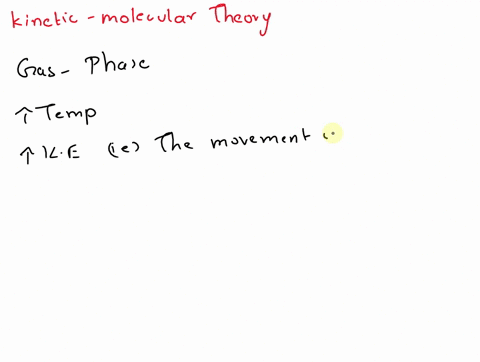 kinetic - molecular Theory
Gas - Phase
↑ Temp
↑ K.E (ie) The movement